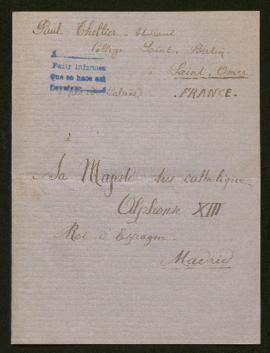 Paul Theltier - Etudiant
Collège Saint. Bertin
à Saint. Omer
(Pas de Calais)
- FRANCE. -
A
Pedir informes
Que se hace así
Devuelvase
à
Sa Majesté très catholique
Alphonse XIII
Roi d'Espagne
Madrid